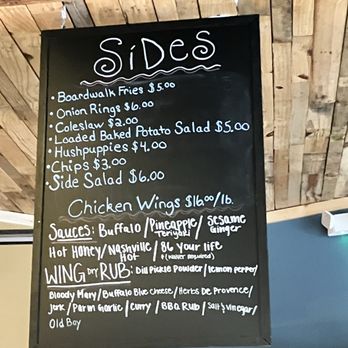 SiDeS
• Boardwalk Fries $5.00
• Onion Rings $6.00
• Coleslaw $2.00
• Loaded Baked Potato Salad $5.00
• Hushpuppies $4.00
• Chips $3.00
• Side Salad $6.00
Chicken Wings $16.00/lb.
Sauces: Buffalo / Pineapple Teriyaki / Sesame Ginger
Hot Honey / Nashville Hot / 86 Your life (waiver required)
WING DRY RUB: Dill Pickle Powder / lemon Pepper /
Bloody Mary / Buffalo Blue Cheese / Herbs De Provence /
Jerk / Parm Garlic / Curry / BBQ Rub / Salt & Vinegar /
Old Bay